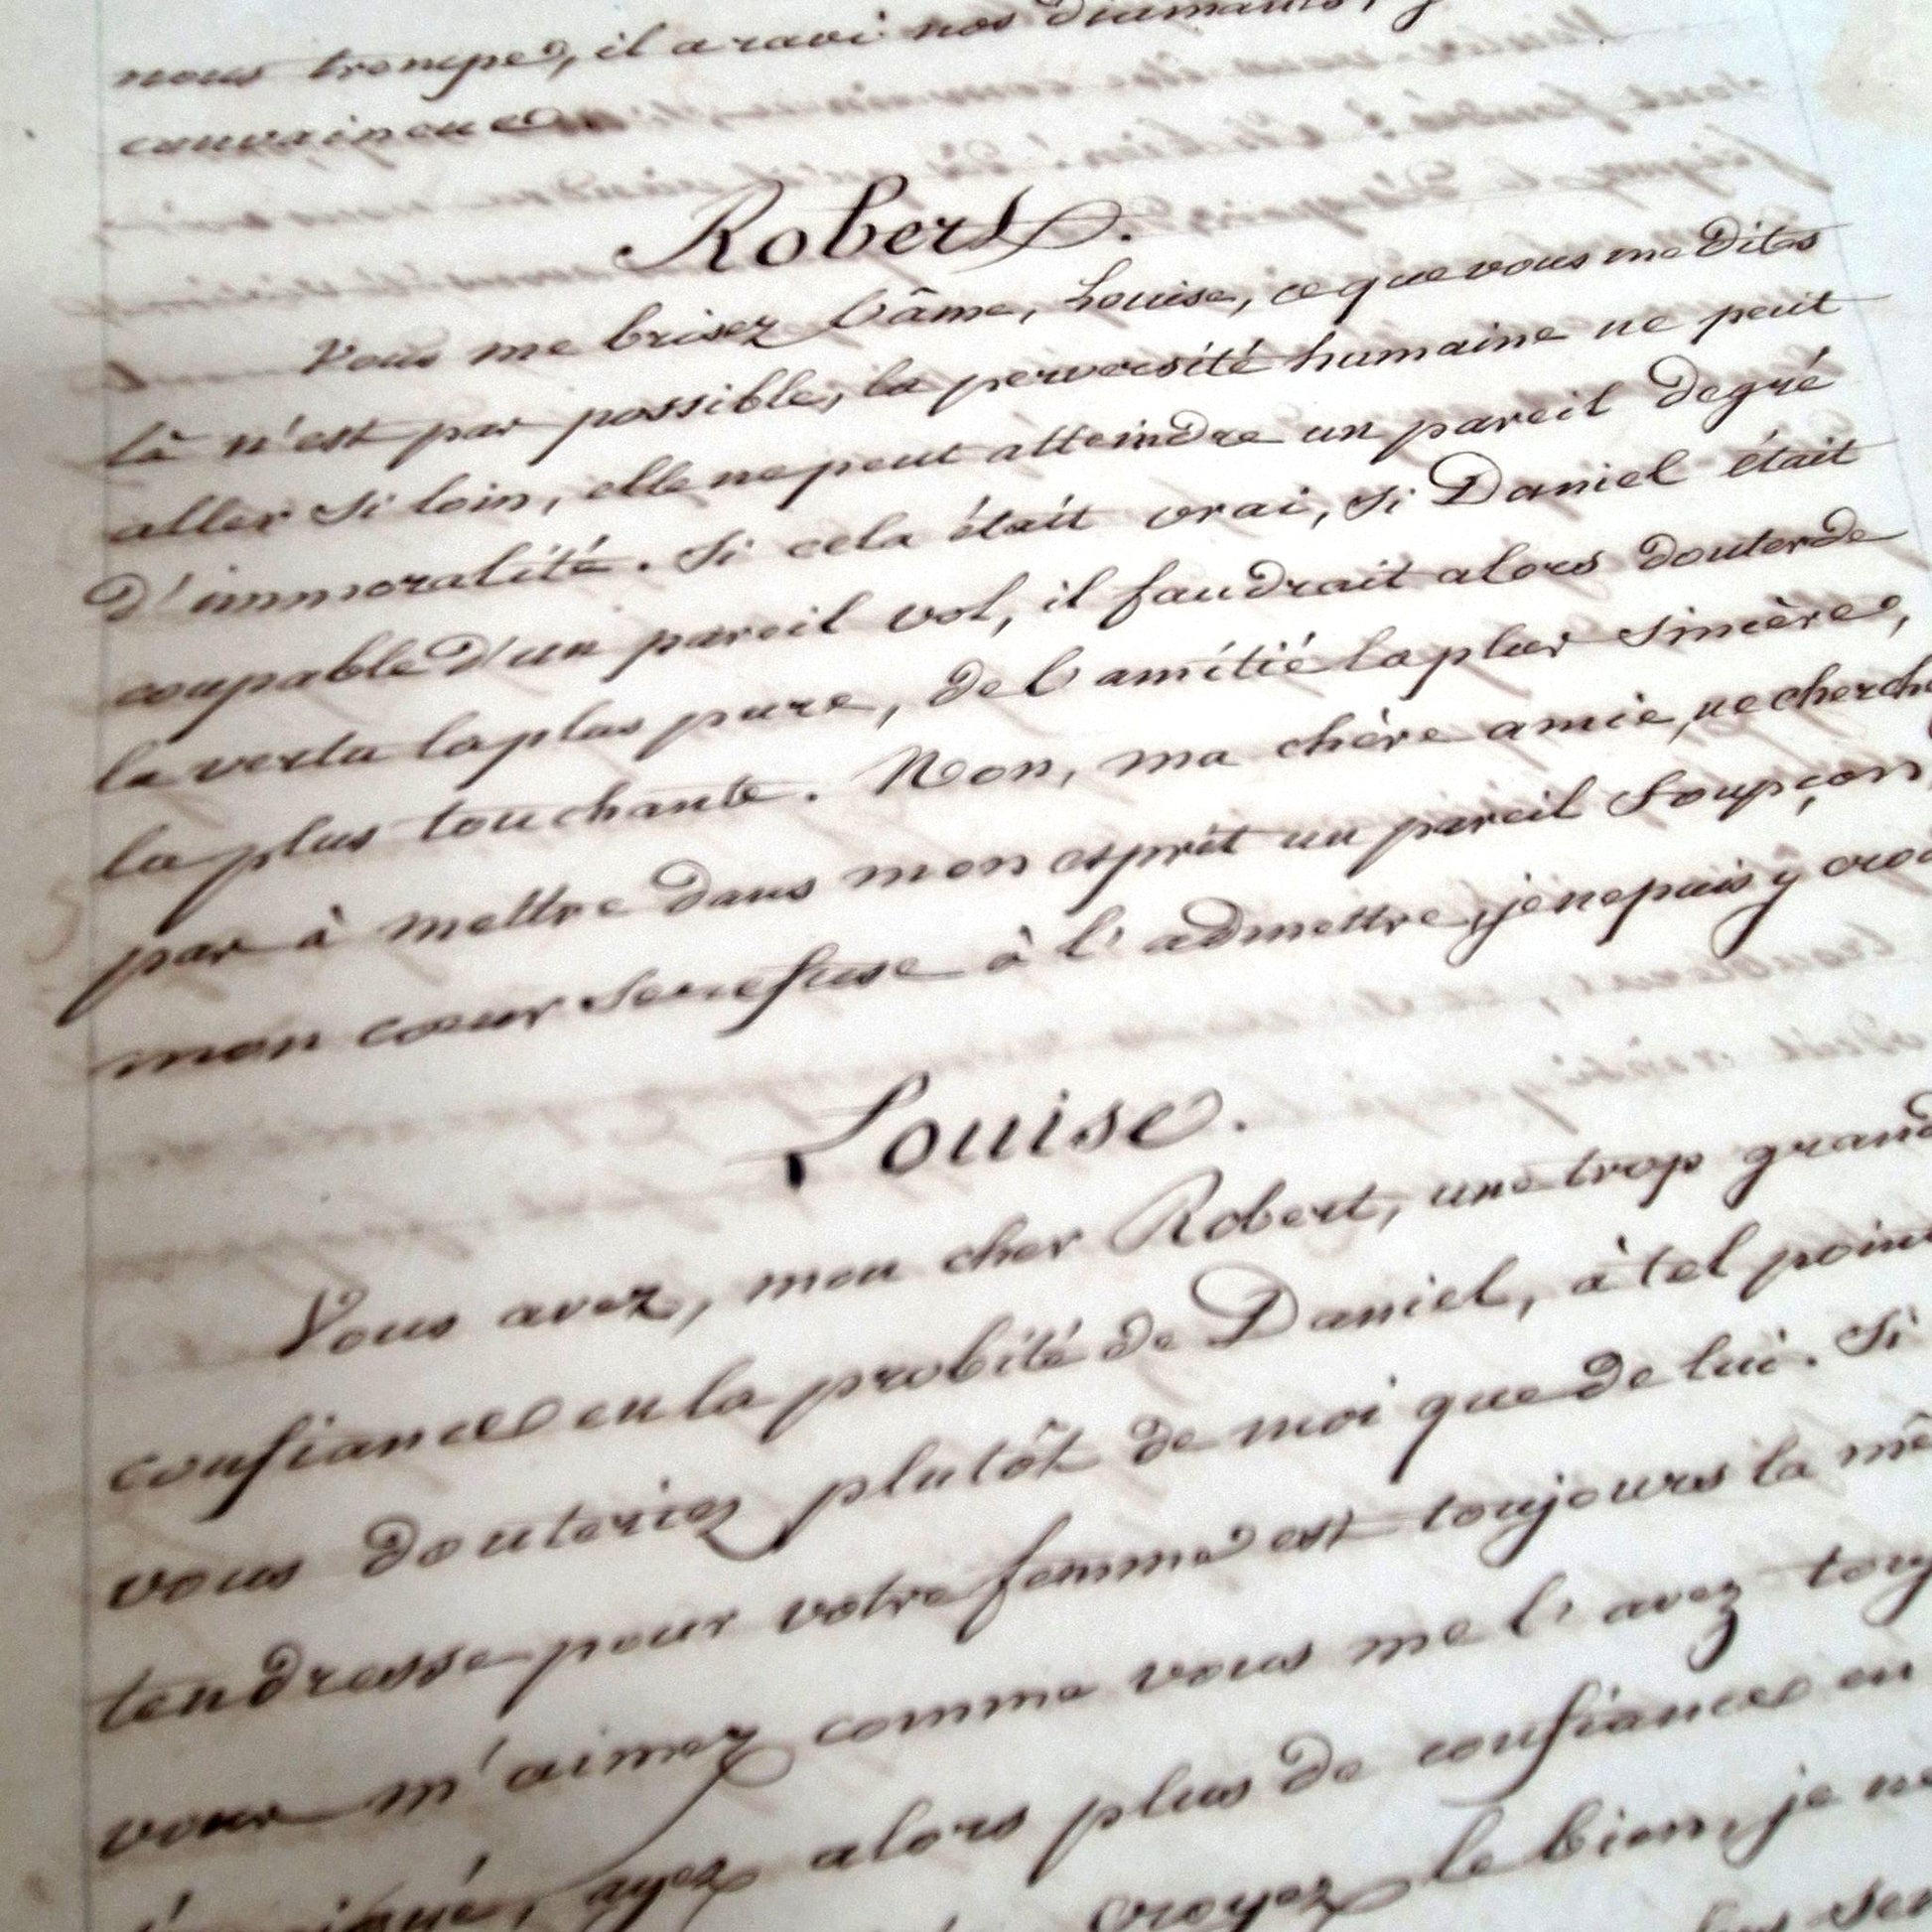 nous trompe, il a ravi nos diamants,
convaincue
Robert.
Vous me brisez l'âme, Louise, ce que vous me dites
là n'est pas possible, la perversité humaine ne peut
aller si loin, elle ne peut atteindre un pareil degré
d'immoralité. Si cela était vrai, si Daniel était
coupable d'un pareil vol, il faudrait alors douter de
la vertu la plus pure, de l'amitié la plus sincère,
la plus touchante. Non, ma chère amie, ne cherch
pas à mettre dans mon esprit un pareil soupçon
mon cœur se refuse à l'admettre, je ne puis y croi
Louise.
Vous avez, mon cher Robert, une trop grand
confiance en la probité de Daniel, à tel point
vous douteriez plutôt de moi que de lui. Si
tendresse pour votre femme est toujours la mê
vous m'aimez comme vous me l'avez touj
ayez alors plus de confiance en
croyez le bien, je ne